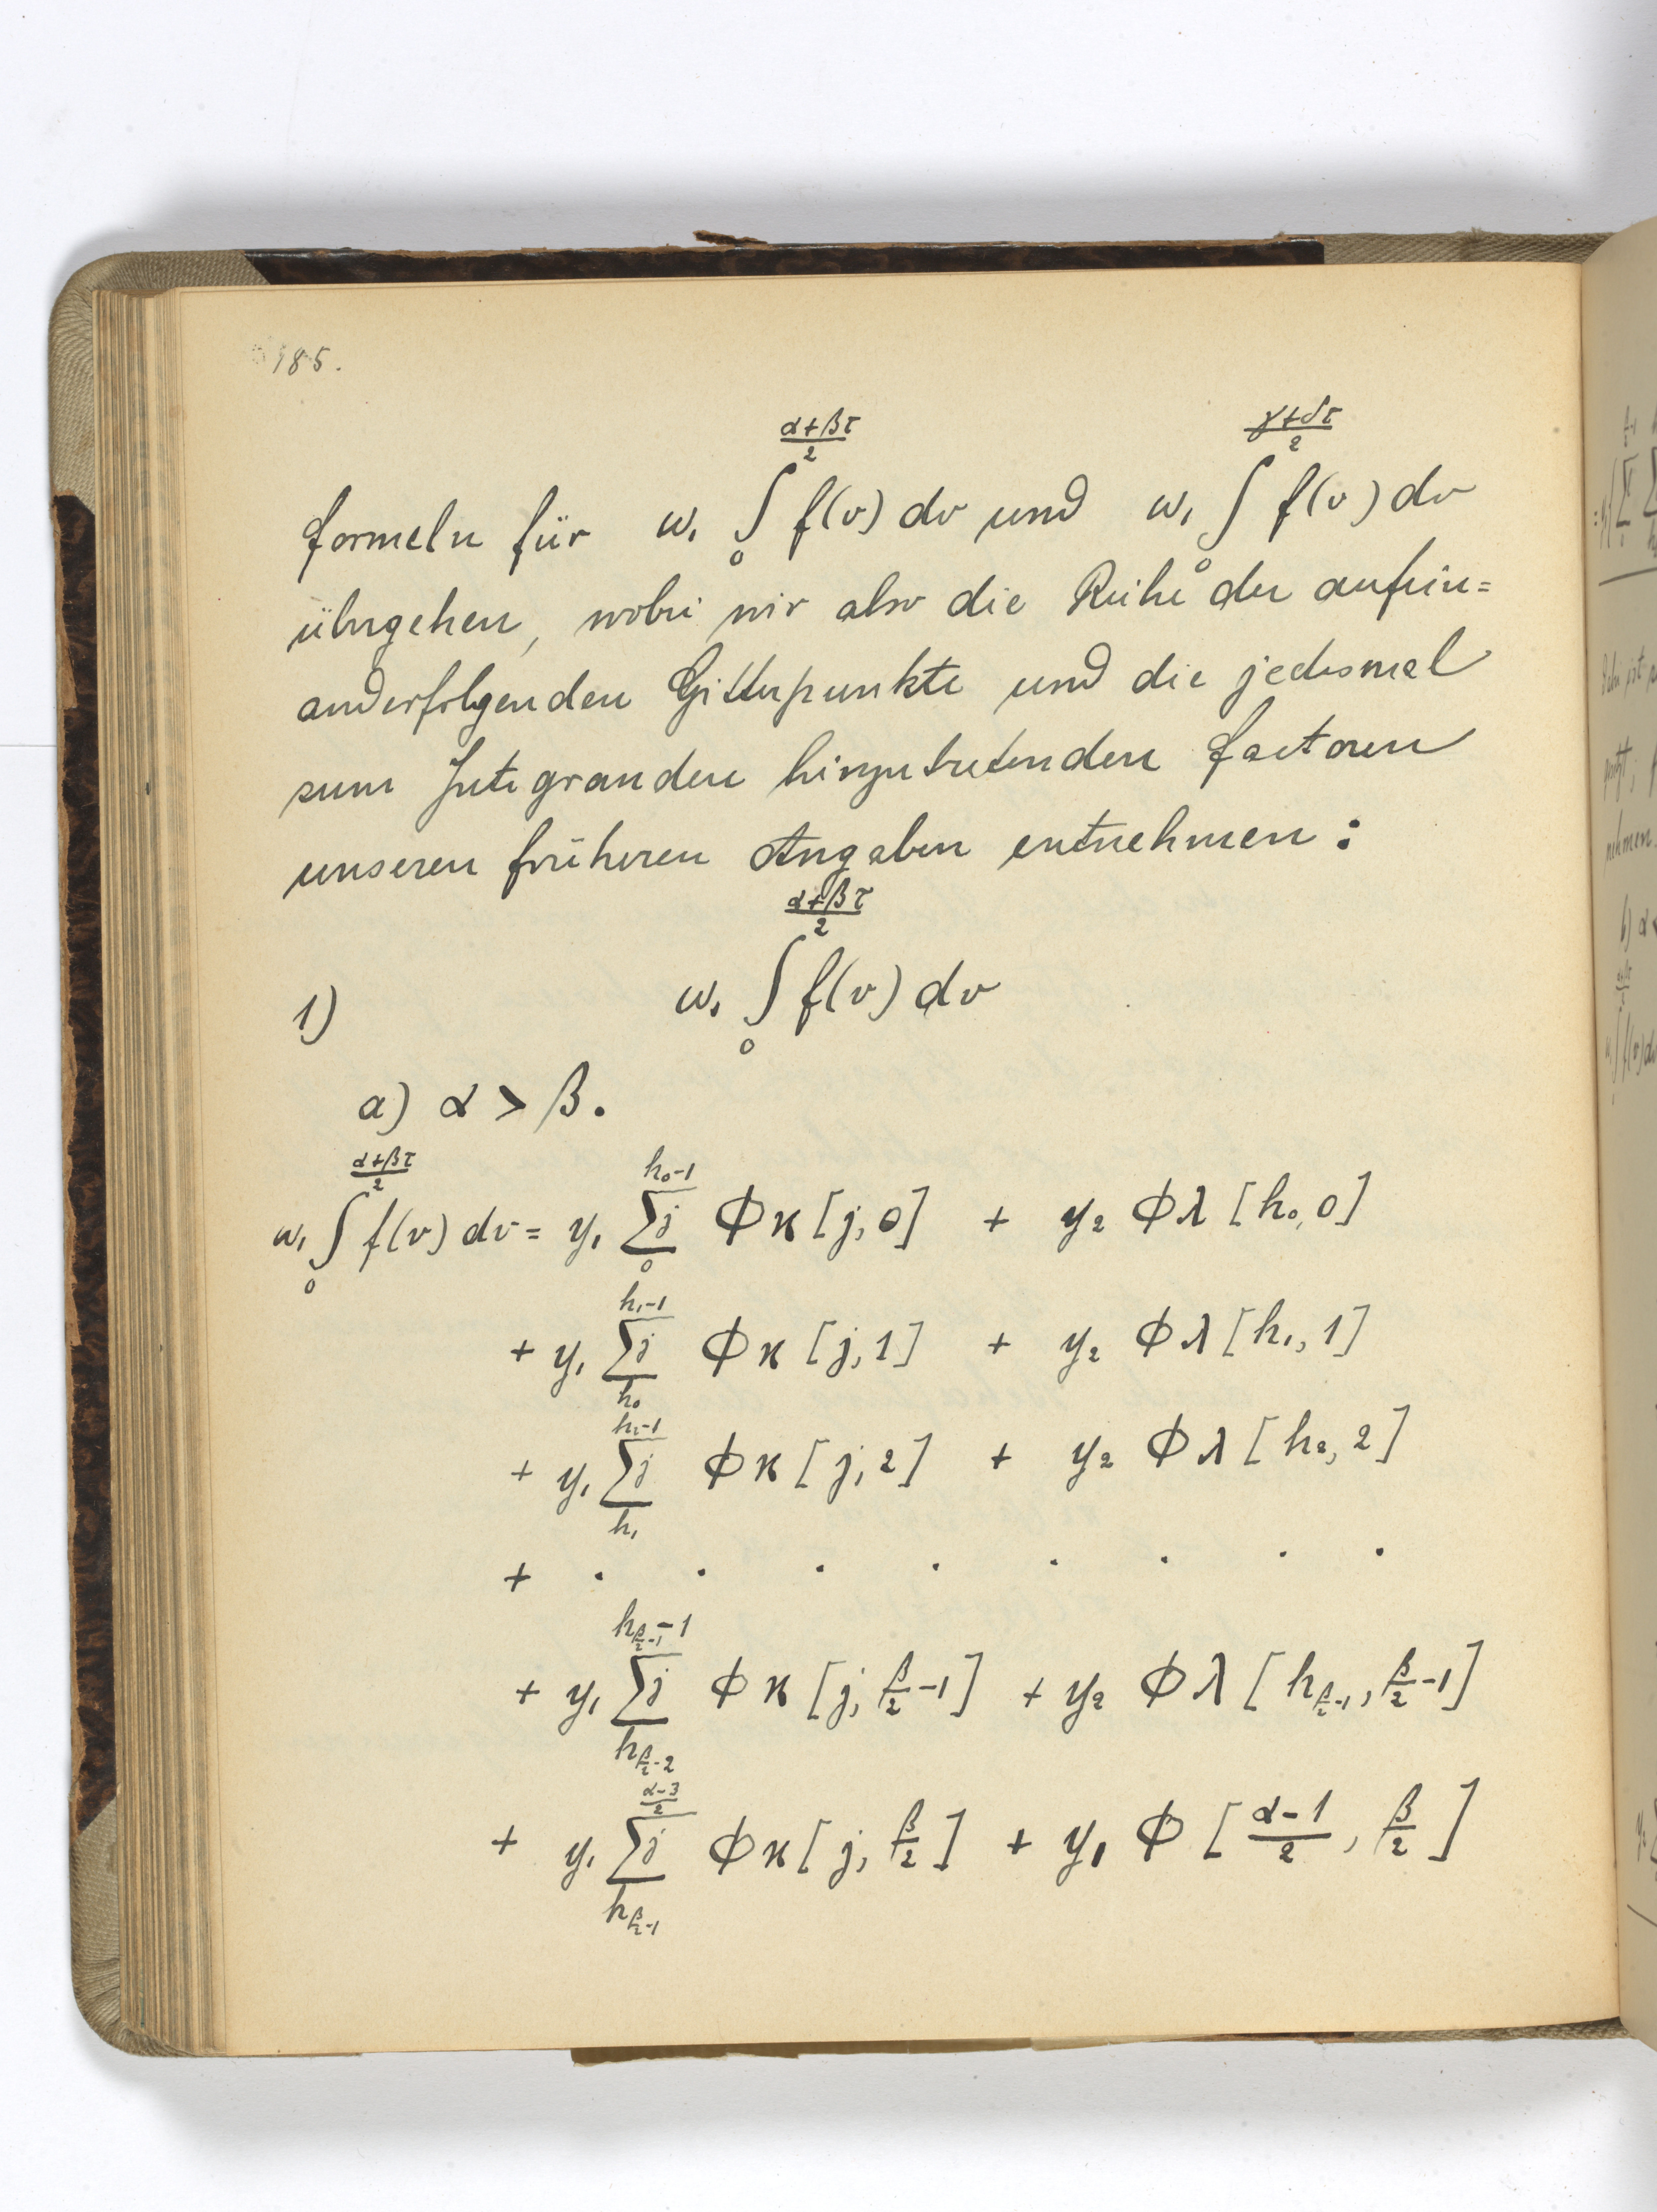 185.
formeln für $\omega_1 \int_0^{\frac{\alpha+\beta\tau}{2}} f(v) dv$ und $\omega_1 \int_0^{\frac{\gamma+\delta\tau}{2}} f(v) dv$
übergehen, wobei wir also die Reihe der aufein=
anderfolgenden Gitterpunkte und die jedesmal
zum Integranden hinzutretenden Factoren
unseren früheren Angaben entnehmen:
1) $\omega_1 \int_0^{\frac{\alpha+\beta\tau}{2}} f(v) dv$
a) $\alpha > \beta$.
$\omega_1 \int_0^{\frac{\alpha+\beta\tau}{2}} f(v) dv = y_1 \sum_0^{h_0-1}{}_j \Phi\varkappa [j, 0] + y_2 \Phi\lambda [h_0, 0]$
$+ y_1 \sum_{h_0}^{h_1-1}{}_j \Phi\varkappa [j, 1] + y_2 \Phi\lambda [h_1, 1]$
$+ y_1 \sum_{h_1}^{h_2-1}{}_j \Phi\varkappa [j, 2] + y_2 \Phi\lambda [h_2, 2]$
+ . . . . . . . .
$+ y_1 \sum_{h_{\frac{\beta}{2}-2}}^{h_{\frac{\beta}{2}-1}-1}{}_j \Phi\varkappa [j, \frac{\beta}{2}-1] + y_2 \Phi\lambda [h_{\frac{\beta}{2}-1}, \frac{\beta}{2}-1]$
$+ y_1 \sum_{h_{\frac{\beta}{2}-1}}^{\frac{\alpha-3}{2}}{}_j \Phi\varkappa [j, \frac{\beta}{2}] + y_1 \Phi [\frac{\alpha-1}{2}, \frac{\beta}{2}]$